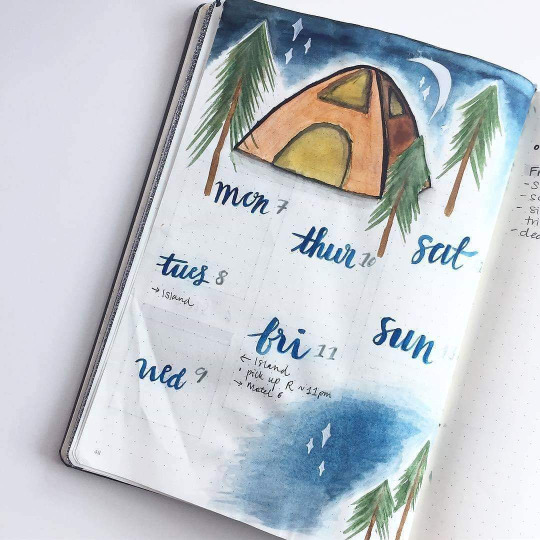 mon 7
tues 8
→ Island
wed 9
thur 10
fri 11
← Island
• pick up R ~11pm
→ Motel 6
sat
sun